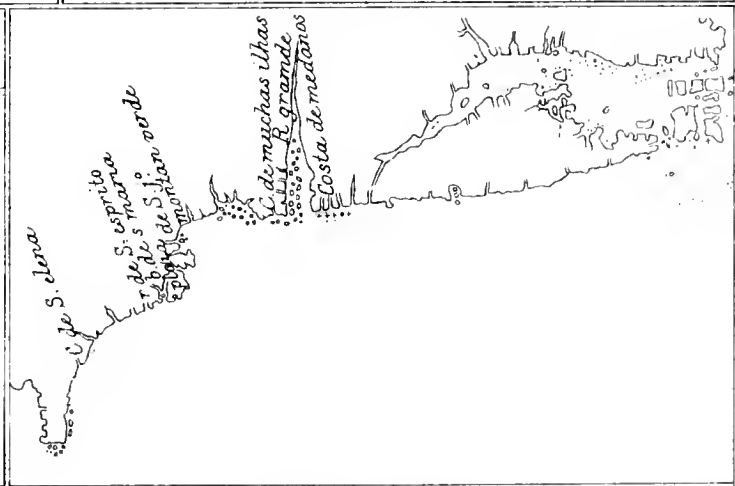 C de S. elena
r de S. esprito
b. de s maria
b. de S. jº
montan verde
C de muchas ilhas
R grande
Costa de medanos